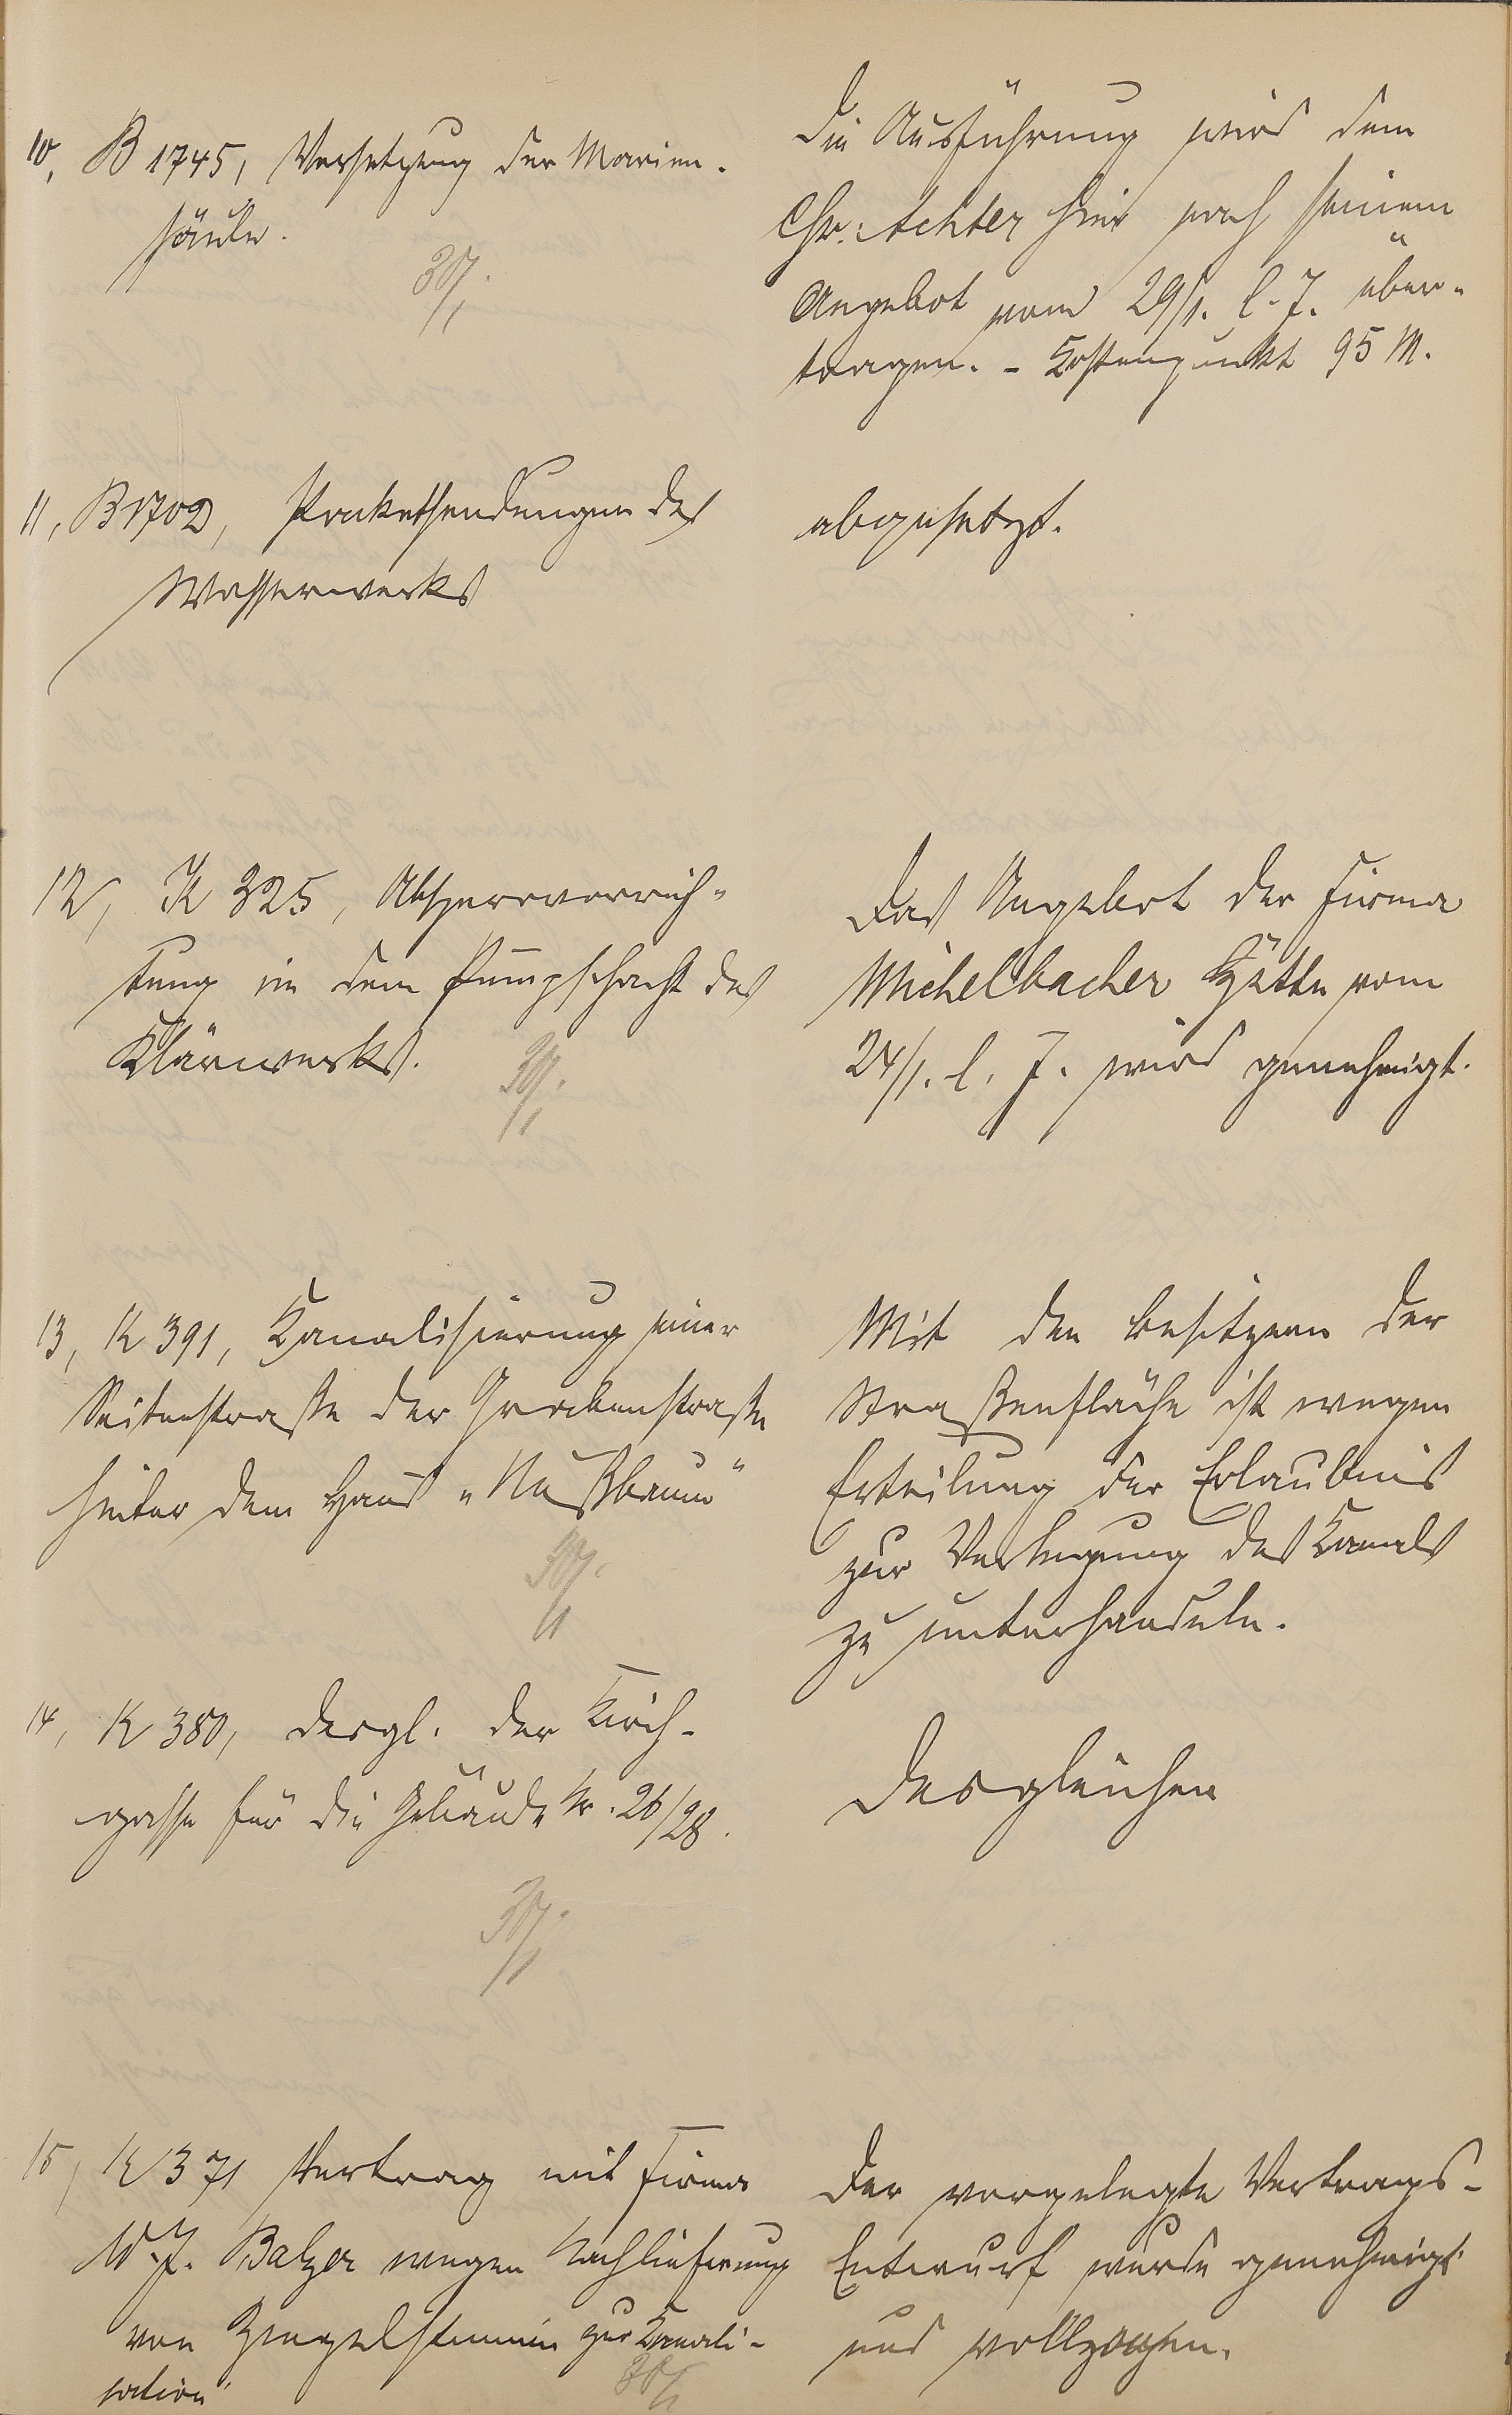 10, B 1745, Versetzung der Marien-
säule.
30/1.
Die Ausführung wird dem
Chr. Achter hier nach seinem
Angebot vom 29/1. l. J. über-
tragen. - Kostenpunkt 95 M.
11, B 1702, Paketsendungen des
Wasserwerks
abgesetzt.
12, K 325, Absperrvorrich-
tung in dem Pumpschacht des
Klärwerks.
30/1.
Das Angebot der Firma
Michelbacher Hütte vom
24/1. l. J. wird genehmigt.
13, K 391, Kanalisierung einer
Seitenstraße der Grabenstraße
hinter dem Haus „Nußbaum"
30/1.
Mit den Besitzern der
Straßenfläche ist wegen
Erteilung der Erlaubnis
zur Verlegung des Kanals
zu unterhandeln.
14, K 380, desgl. der Kirch-
gasse für die Gebäude Nr. 26/28.
30/1.
Desgleichen
15, K 371 Vertrag mit Firma
W. J. Balzer wegen Nachlieferung
von Ziegelsteinen zur Kanali-
sation
30/1
Der vorgelegte Vertrags-
Entwurf wurde genehmigt
und vollzogen.